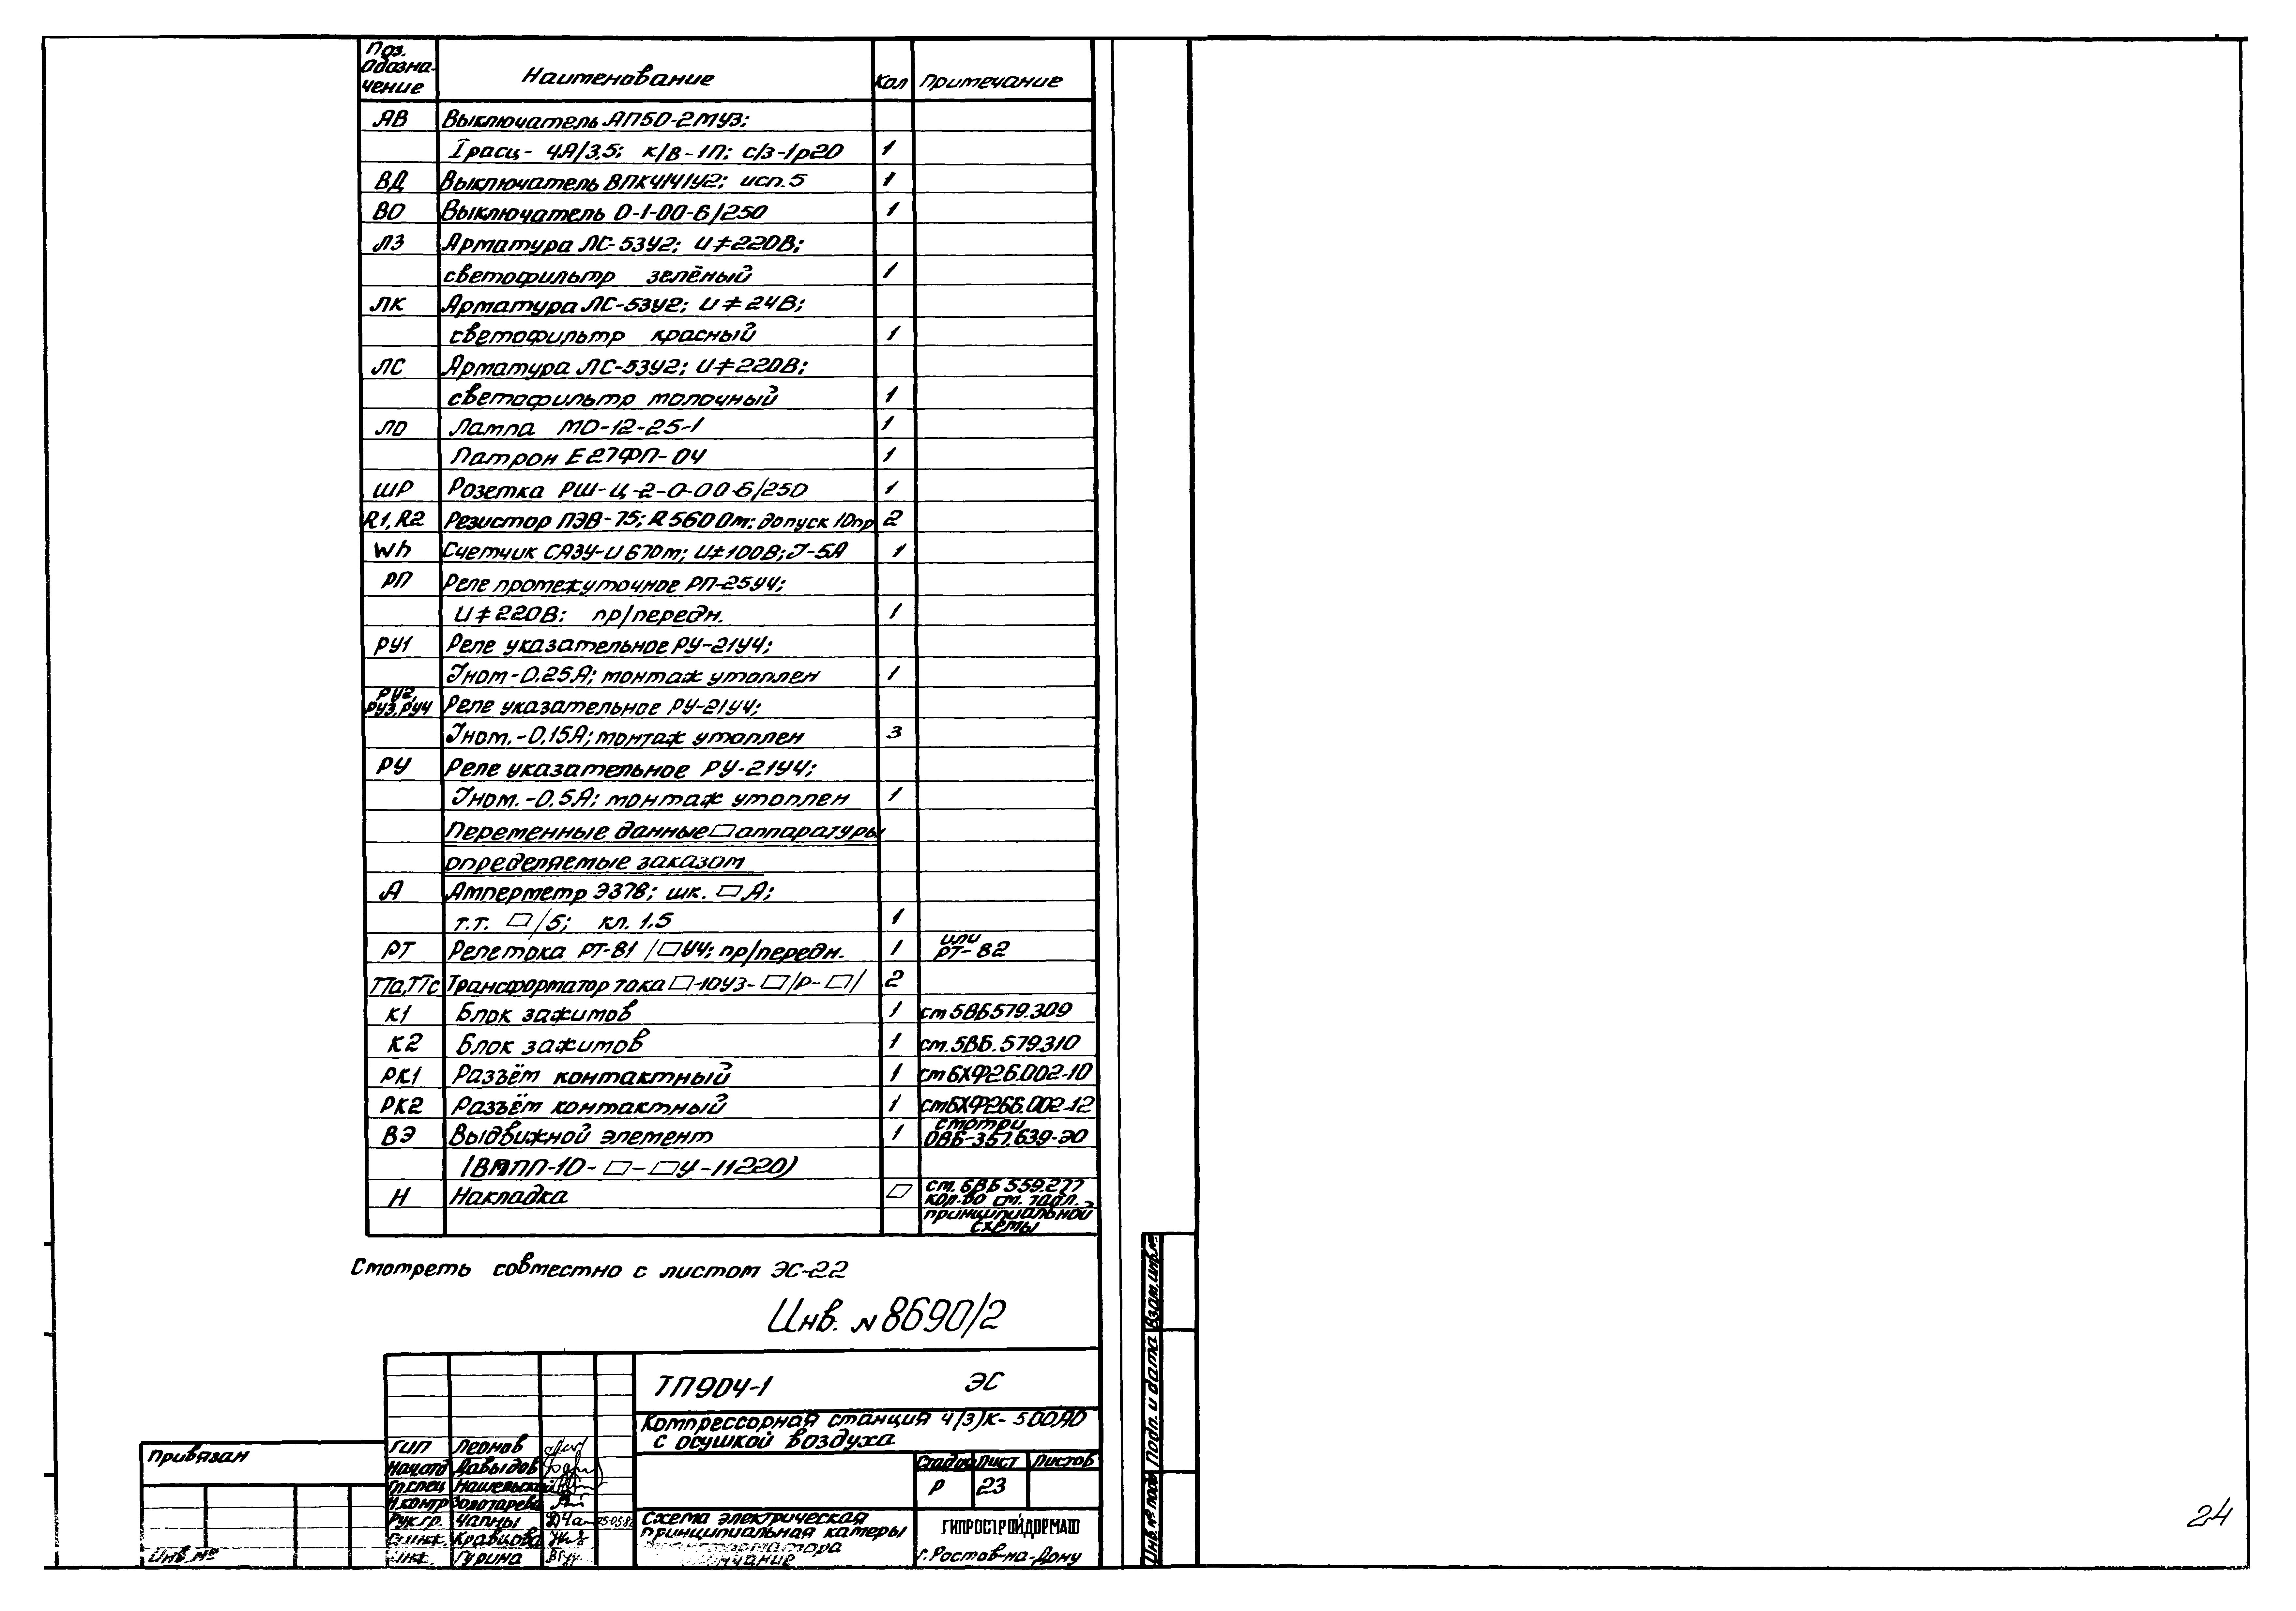 Поз. Обозначение Наименование Кол Примечание
АВ Выключатель АП50-2МУЗ;
Iрасц- 4А/3,5; к/в-1П; с/з-1р20 1
ВД Выключатель ВПК4141У2; исп.5 1
ВО Выключатель 0-1-00-6/250 1
ЛЗ Арматура ЛС-53У2; U≠220В;
светофильтр зелёный 1
ЛК Арматура ЛС-53У2; U≠24В;
светофильтр красный 1
ЛС Арматура ЛС-53У2; U≠220В;
светофильтр молочный 1
ЛО Лампа МО-12-25-1 1
Патрон Е27ФП-04 1
ШР Розетка РШ-Ц-2-0-00-6/250 1
R1,R2 Резистор ПЭВ-75; R 560 Ом; допуск 10пр 2
Wh Счетчик САЗУ-И670м; U≠100В; I-5А 1
РП Реле промежуточное РП-25У4;
U≠220В; пр/передн. 1
РУ1 Реле указательное РУ-21У4;
Iном-0,25А; монтаж утоплен 1
РУ2, РУ3, РУ4 Реле указательное РУ-21У4;
Iном.-0,15А; монтаж утоплен 3
РУ Реле указательное РУ-21У4;
Iном.-0,5А; монтаж утоплен 1
Переменные данные □ аппаратуры
определяемые заказом
А Амперметр Э378; шк. □ А;
т.т. □/5; кл. 1.5 1
РТ Реле тока РТ-81/□У4; пр/передн. 1 или РТ-82
ТТа,ТТс Трансформатор тока □-10У3-□/Р-□/ 2
К1 Блок зажимов 1 см 5ВБ579.309
К2 Блок зажимов 1 см.5ВБ.579.310
РК1 Разъём контактный 1 см 6ХФ26.002-10
РК2 Разъём контактный 1 см6ХФ266.002-12
ВЭ Выдвижной элемент 1 смотри ОВБ-357.639-ЭО
(ВМПП-10-□-□У-11220)
Н Накладка □ см. 6ВБ 559.277
кол-во см. табл.
принципиальной
схемы
Смотреть совместно с листом ЭС-22
Инв. N 8690/2
ТП904-1 ЭС
Компрессорная станция 4(3)К-500АО
с осушкой воздуха
Привязан
Инв.№
ГИП Леонов
Нач.отд Давыдов
Гл.спец
Н.контр Золотарева
Рук.гр. Чапны
Ст.инж. Кравцова
Инж. Гурина
Стадия Лист Листов
Р 23
Схема электрическая
принципиальная камеры
трансформатора
Окончание
ГИПРОСТРОЙДОРМАШ
г.Ростов-на-Дону
Взам.инв.№
Подп. и дата
Инв.№ подл.
24